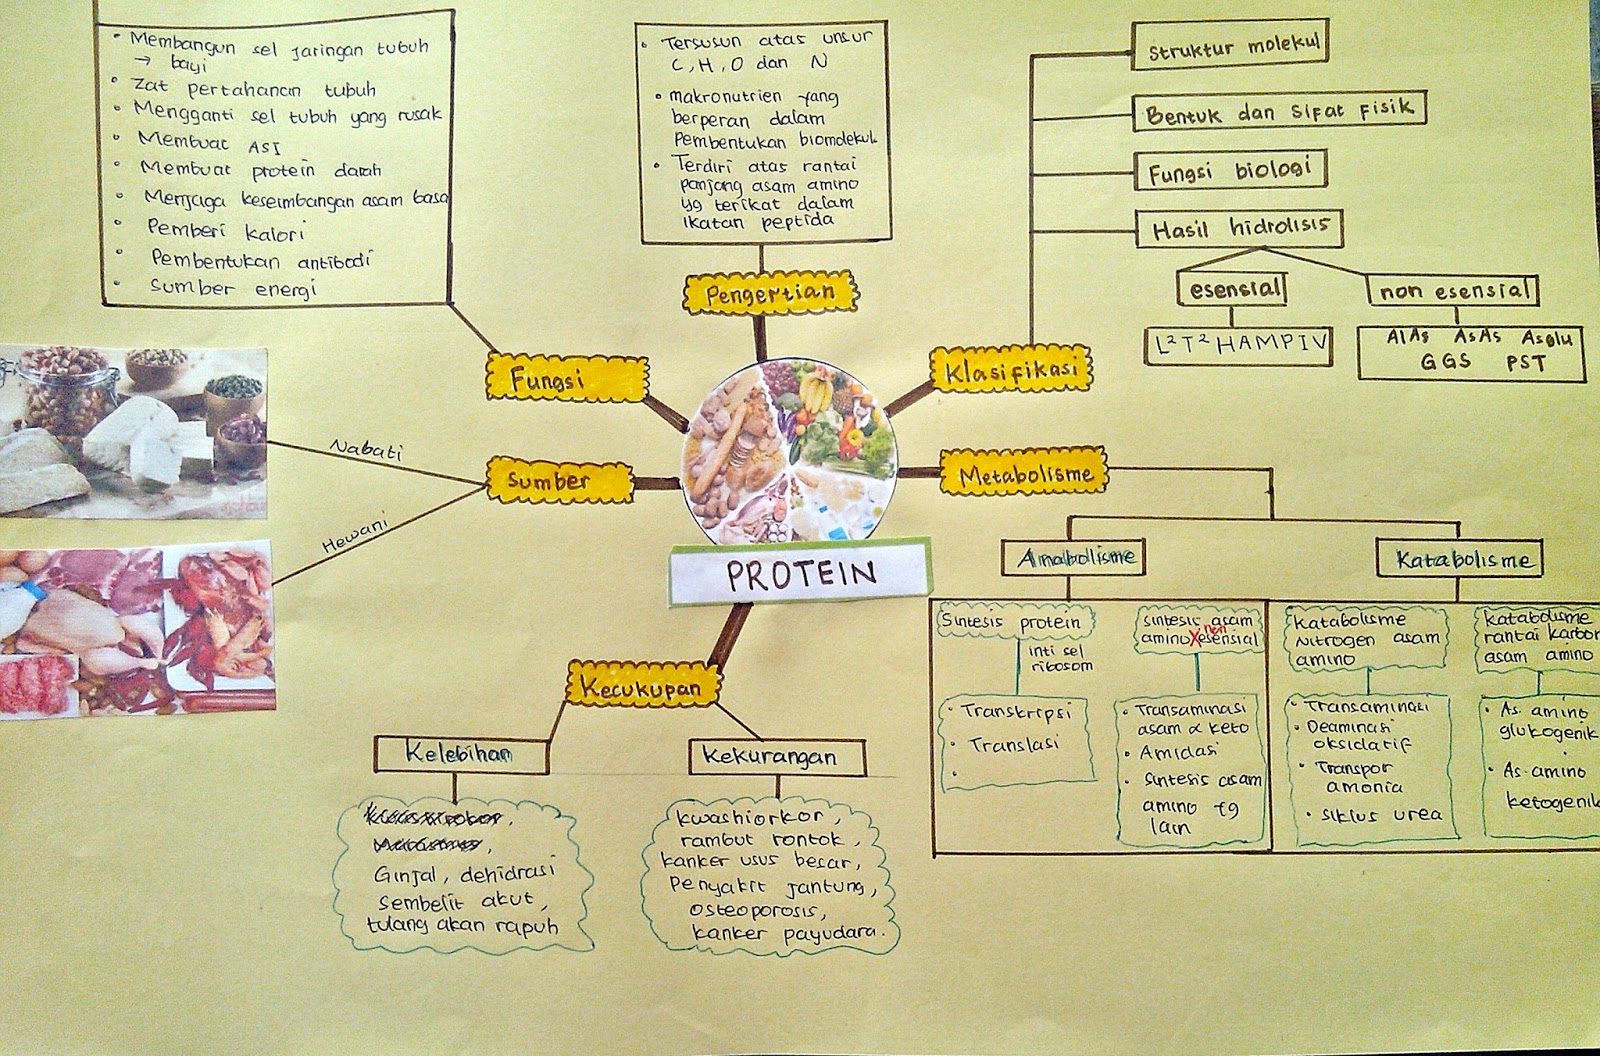 • Membangun sel jaringan tubuh
→ bayi
• Zat pertahanan tubuh
• Mengganti sel tubuh yang rusak
• Membuat ASI
• Membuat protein darah
• Menjaga keseimbangan asam basa
• Pemberi kalori
• Pembentukan antibodi
• Sumber energi
Fungsi
• Tersusun atas unsur
C, H, O dan N
• makronutrien yang
berperan dalam
Pembentukan biomolekul
• Terdiri atas rantai
panjang asam amino
yg terikat dalam
ikatan peptida
Pengertian
Struktur molekul
Bentuk dan sifat fisik
Fungsi biologi
Hasil hidrolisis
esensial
non esensial
L²T² HAMPIV
AlAs AsAs Asglu
GGS PST
Klasifikasi
Sumber
Nabati
Hewani
PROTEIN
Metabolisme
Anabolisme
Katabolisme
Sintesis protein
inti sel
ribosom
• Transkripsi
• Translasi
•
sintesis asam
amino non esensial
• Transaminasi
asam α keto
• Amidasi
• Sintesis asam
amino yg
lain
Katabolisme
Nitrogen asam
amino
• Transaminasi
• Deaminasi
oksidatif
• Transpor
amonia
• siklus urea
katabolisme
rantai karbon
asam amino
• As. amino
glukogenik
• As. amino
ketogenik
Kecukupan
Kelebihan
Ginjal, dehidrasi
Sembelit akut,
tulang akan rapuh
Kekurangan
kwashiorkor,
rambut rontok,
kanker usus besar,
Penyakit jantung,
osteoporosis,
kanker payudara.